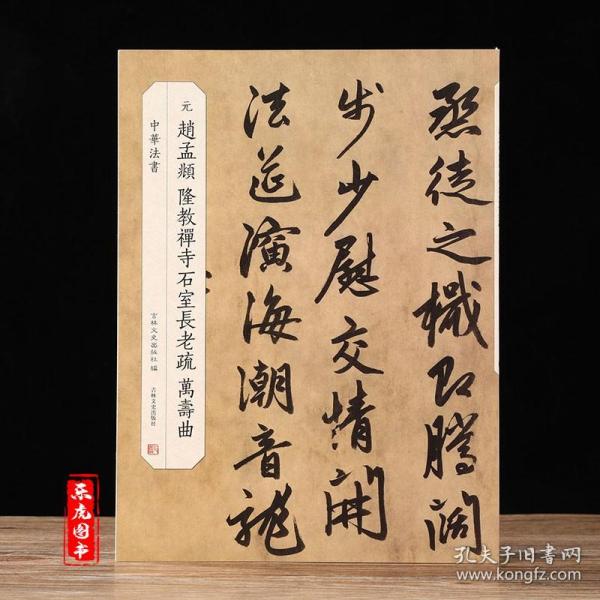 焄徒之檝即騰闊
步少慰交情開
法莚演海潮音龍
元 趙孟頫 隆教禪寺石室長老疏 萬壽曲
中華法書
吉林文史出版社 編
吉林文史出版社
乐虎图书
孔夫子旧书网
www.kongfz.com